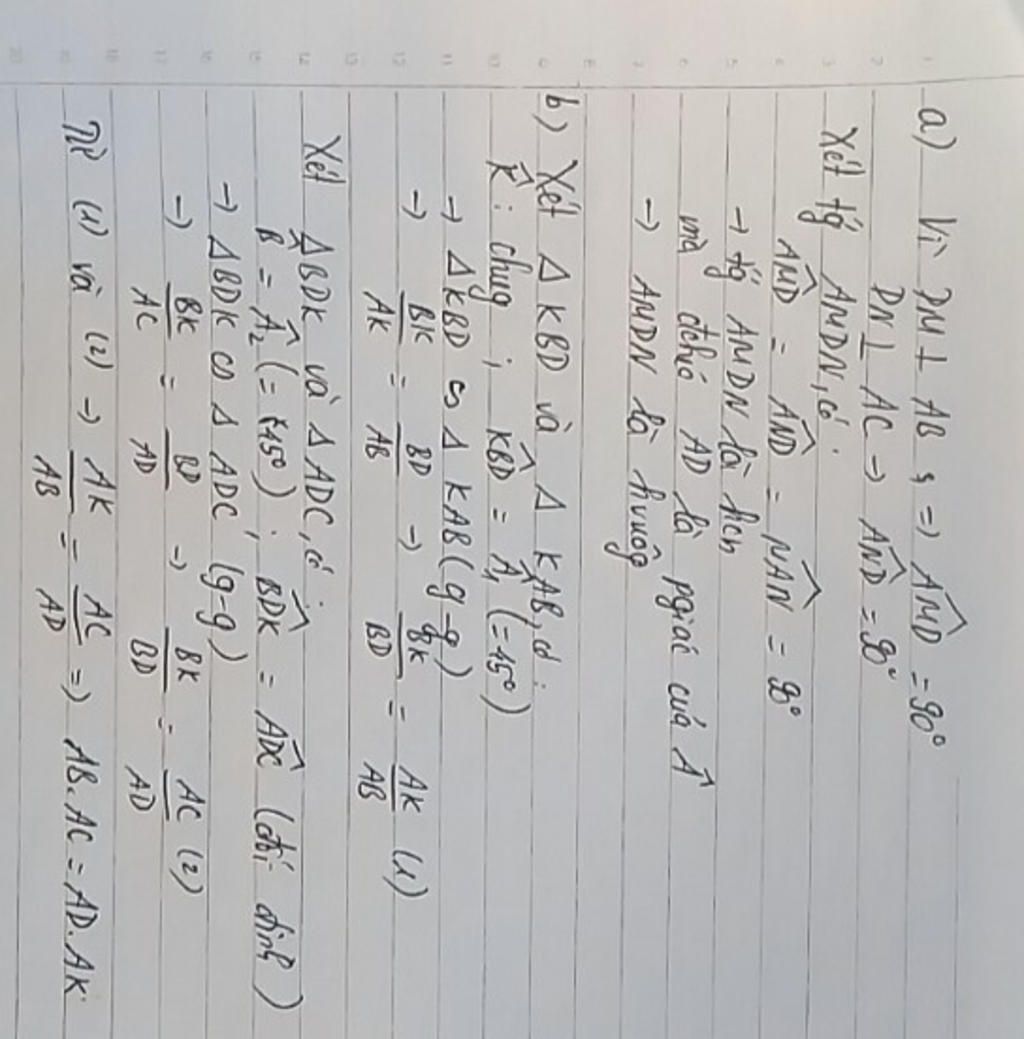 a) Vì DM ⊥ AB => \widehat{AMD} = 90°
DN ⊥ AC → \widehat{AND} = 90°
Xét tg AMDN, có:
\widehat{AMD} = \widehat{AND} = \widehat{MAN} = 90°
→ tg AMDN là hcn
mà đchéo AD là pgiác của \widehat{A}
→ AMDN là hvuôg
b) Xét Δ KBD và Δ KAB, có:
\widehat{K}: chug ; \widehat{KBD} = \widehat{A}₁ (= 45°)
→ Δ KBD ∽ Δ KAB (g-g)
→ BK/AK = BD/AB → BK/BD = AK/AB (1)
Xét ΔBDK và Δ ADC, có:
\widehat{B} = \widehat{A}₂ (= 45°) ; \widehat{BDK} = \widehat{ADC} (đối đỉnh)
→ Δ BDK ∽ Δ ADC (g-g)
→ BK/AC = BD/AD → BK/BD = AC/AD (2)
Từ (1) và (2) → AK/AB = AC/AD => AB.AC = AD.AK.